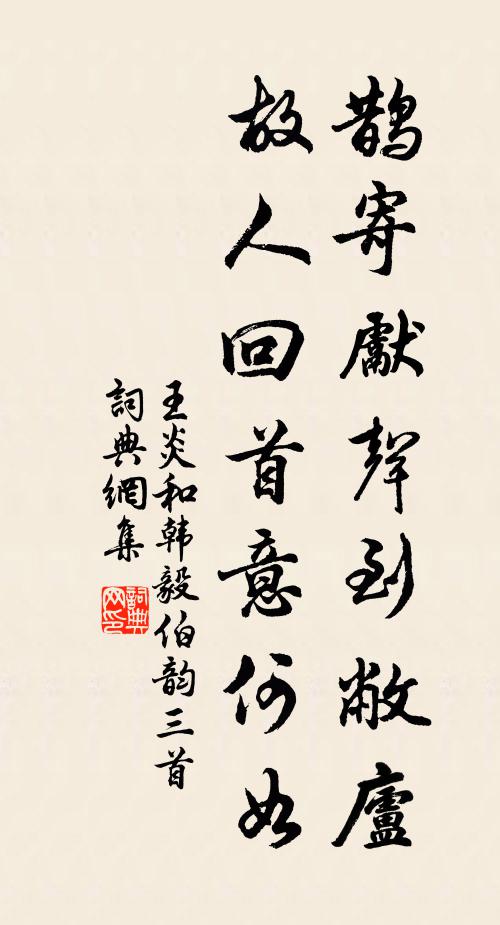 鵲寄獻聲到敝廬
故人回首意何如
王炎和韩毅伯韵三首
詞典網集
詞典网印